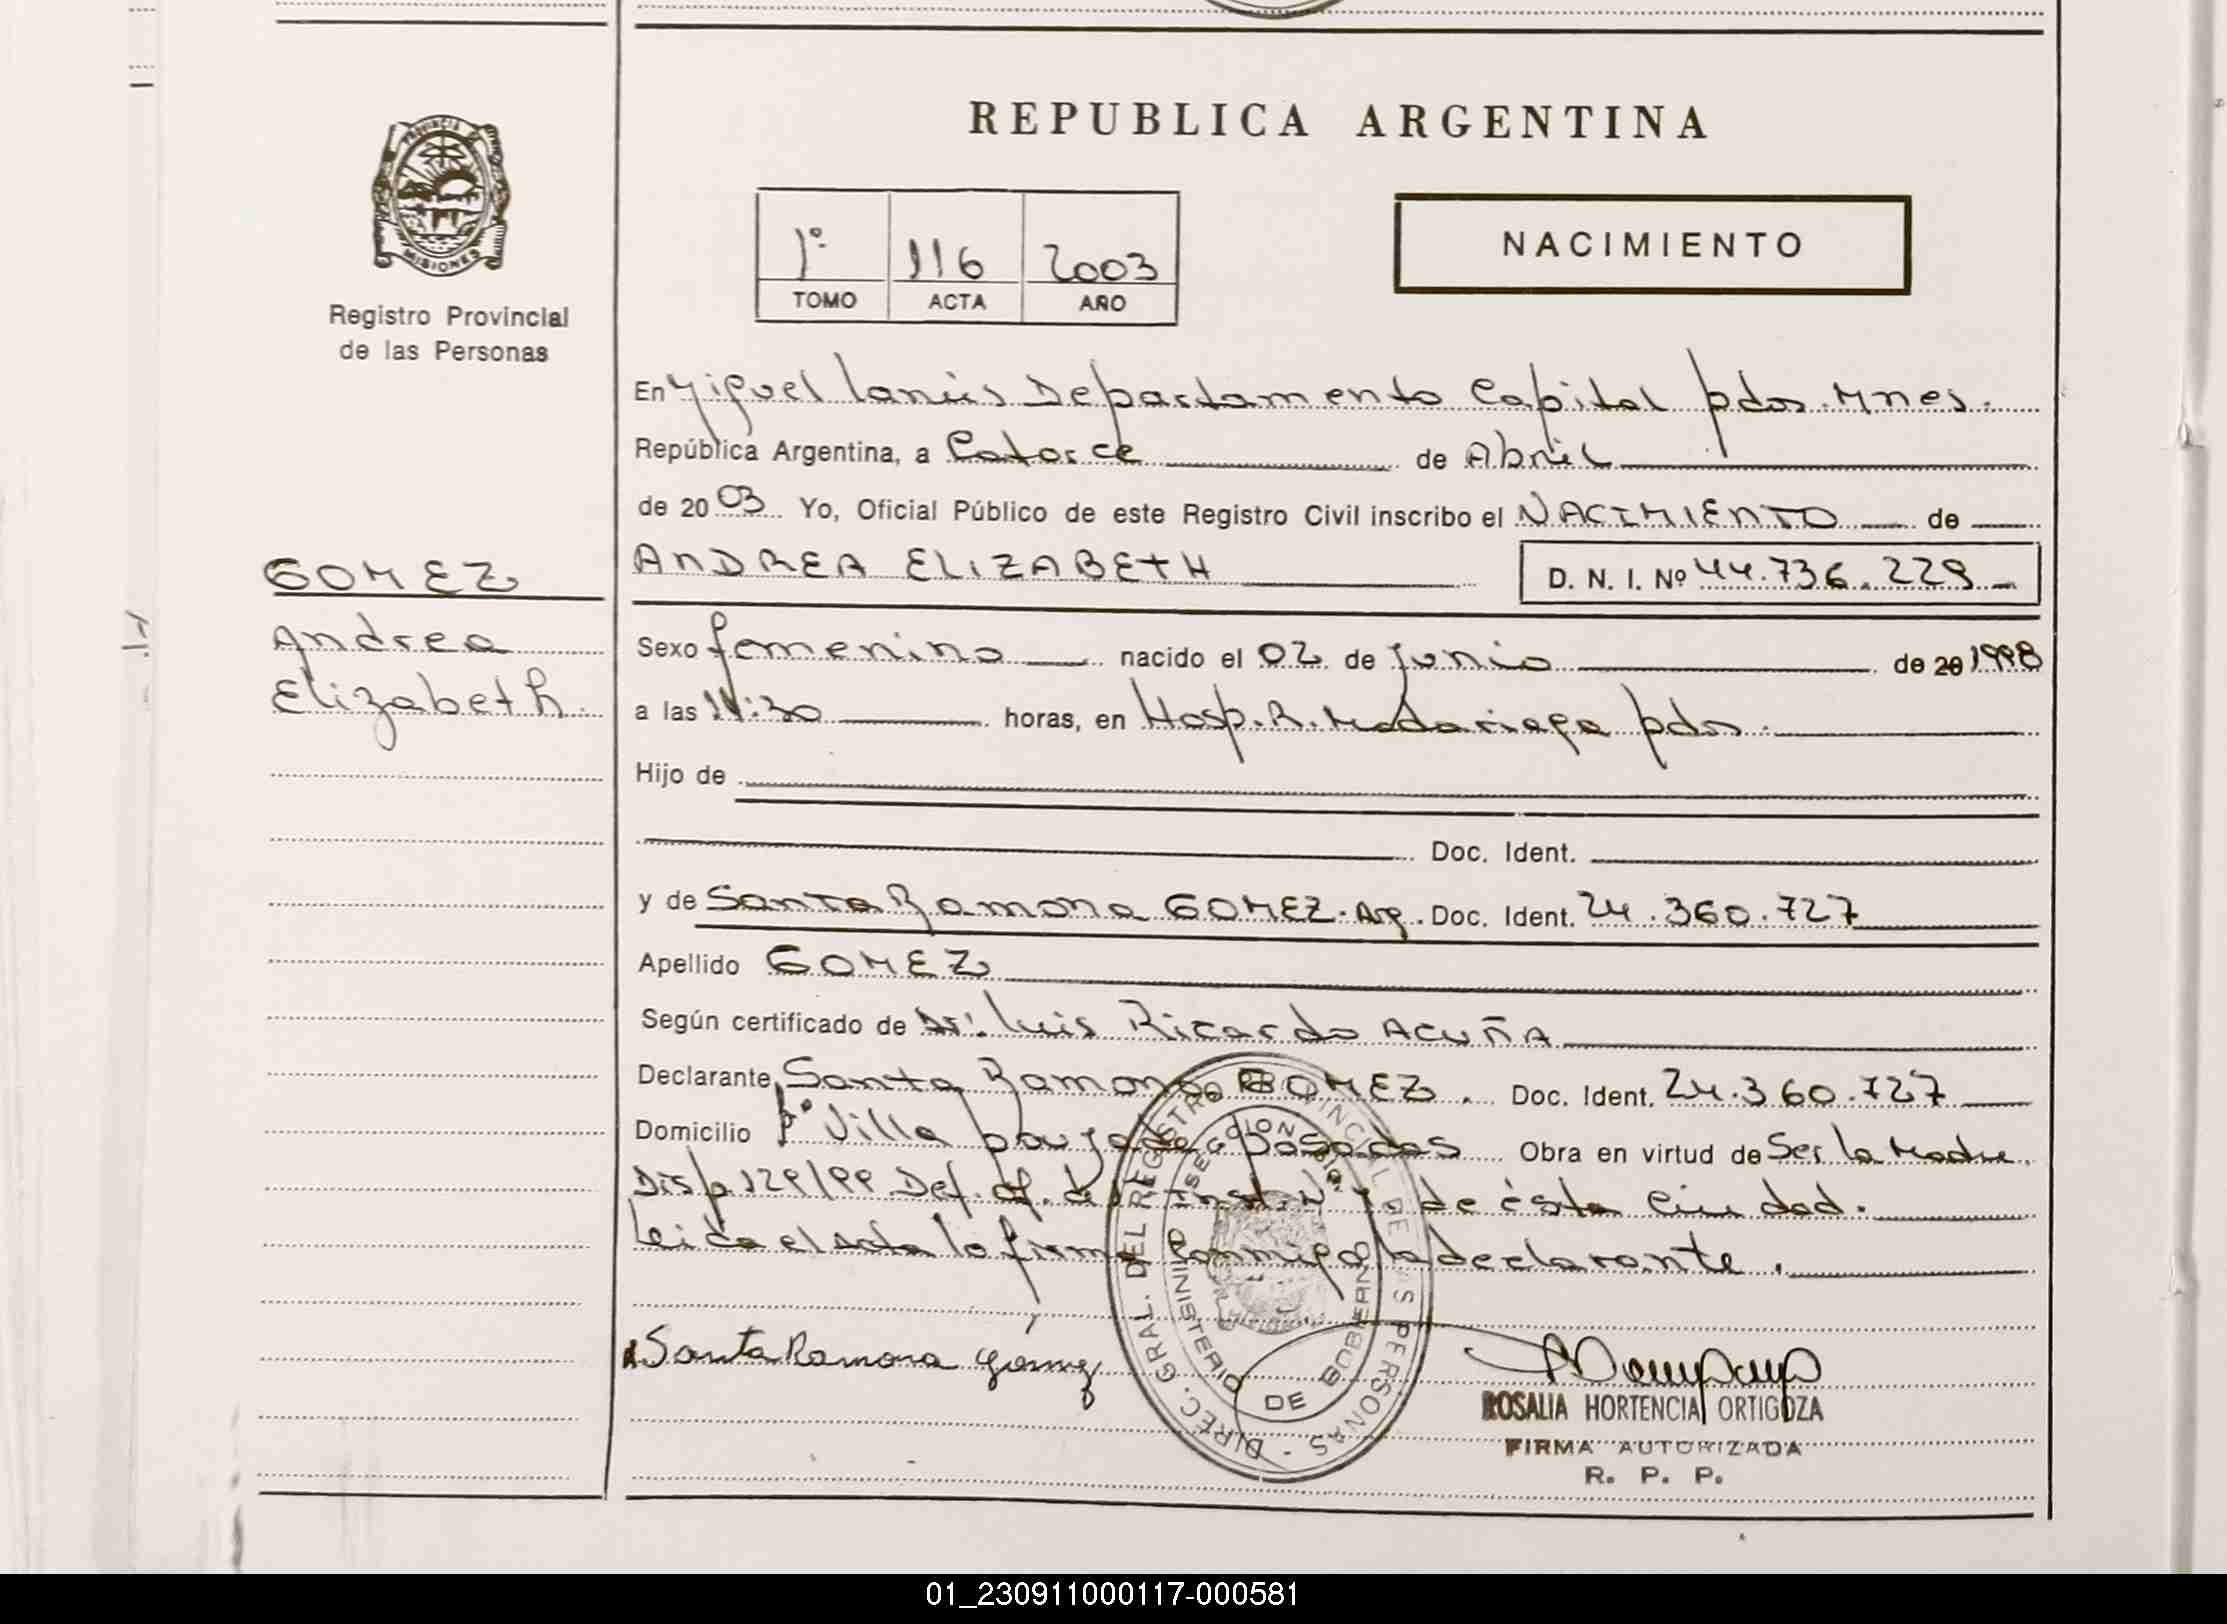 REPUBLICA ARGENTINA
PROVINCIA DE
MISIONES
Registro Provincial
de las Personas
1º 116 2003
TOMO ACTA AÑO
NACIMIENTO
En Miguel Lanús Departamento Capital pdas. Mnes.
República Argentina, a Catorce de Abril
de 2003 Yo, Oficial Público de este Registro Civil inscribo el NACIMIENTO de
GOMEZ
Andrea
Elizabeth.
ANDREA ELIZABETH D. N. I. Nº 44.736.229
Sexo femenino nacido el 02 de Junio de 20 1998
a las 11:30 horas, en Hosp. R. Madariaga pdas.
Hijo de
Doc. Ident.
y de Santa Ramona GOMEZ. Arg. Doc. Ident. 24.360.727
Apellido GOMEZ
Según certificado de Dr. Luis Ricardo ACUÑA
Declarante Santa Ramona GOMEZ. Doc. Ident. 24.360.727
Domicilio Bº Villa Poujade Posadas Obra en virtud de Ser la Madre.
Disp. 129/99 Def. of. de Inst. Nº de ésta Ciudad.
Leida el acta la firma Conmigo la declarante.
Santa Ramona Gómez
DIREC. GRAL. DEL REGISTRO PROVINCIAL DE LAS PERSONAS
MINISTERIO DE GOBIERNO
ROSALIA HORTENCIA ORTIGOZA
FIRMA AUTORIZADA
R. P. P.
01_230911000117-000581